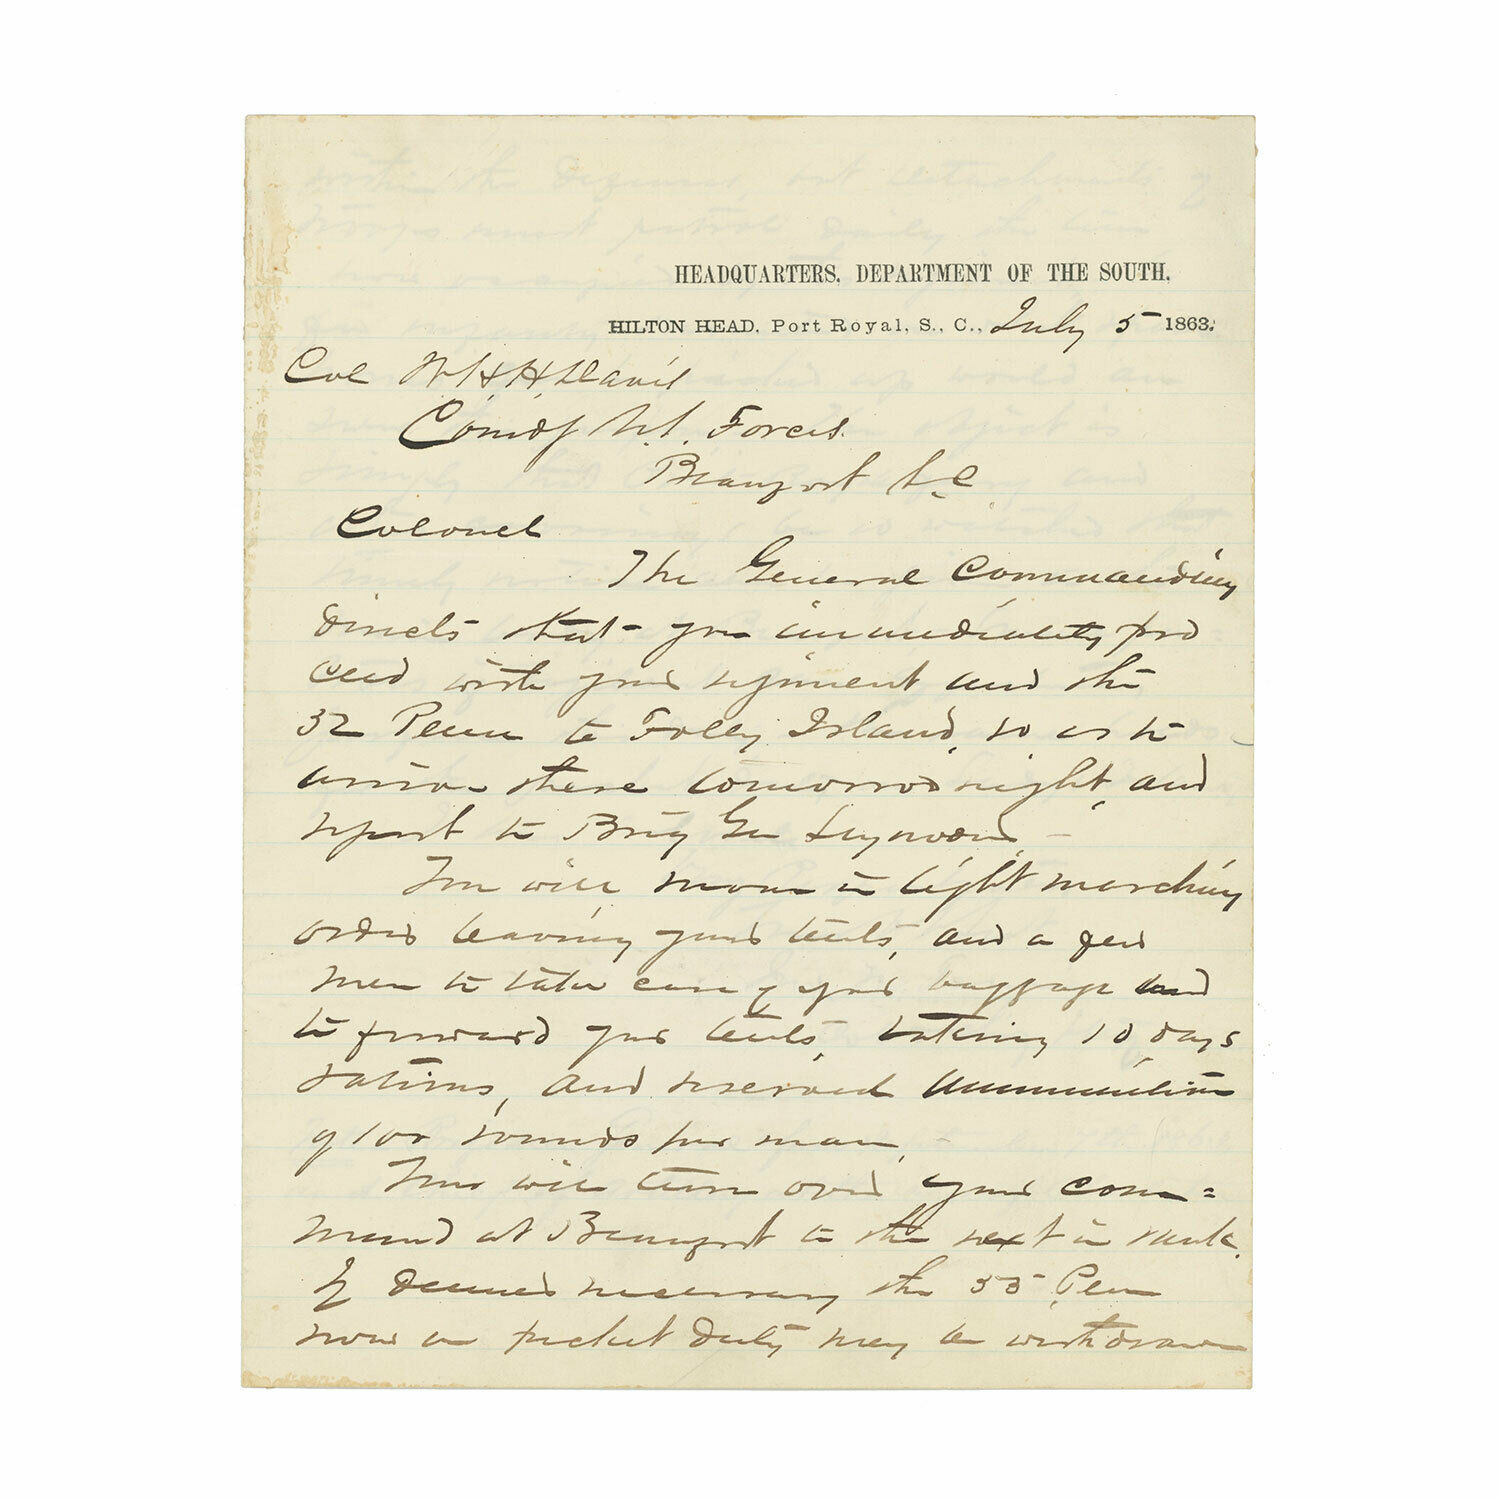 HEADQUARTERS, DEPARTMENT OF THE SOUTH,
HILTON HEAD, Port Royal, S., C., July 5 1863.
Col W.H.H. Davis
Comdg U.S. Forces.
Beaufort S.C
Colonel
The General Commanding
directs that you immediately pro
ceed with your regiment and the
52 Penn to Folly Island, so as to
arrive there tomorrow night, and
report to Brig Gen
You will move in light marching
order leaving your tents, and a few
men to take care of your baggage and
to forward your tents, taking 10 days
rations, and reserved ammunition
of 100 rounds per man,
You will turn over your com=
mand at Beaufort to the next in rank.
If deemed necessary the 55 Penn
now on picket duty may be withdrawn